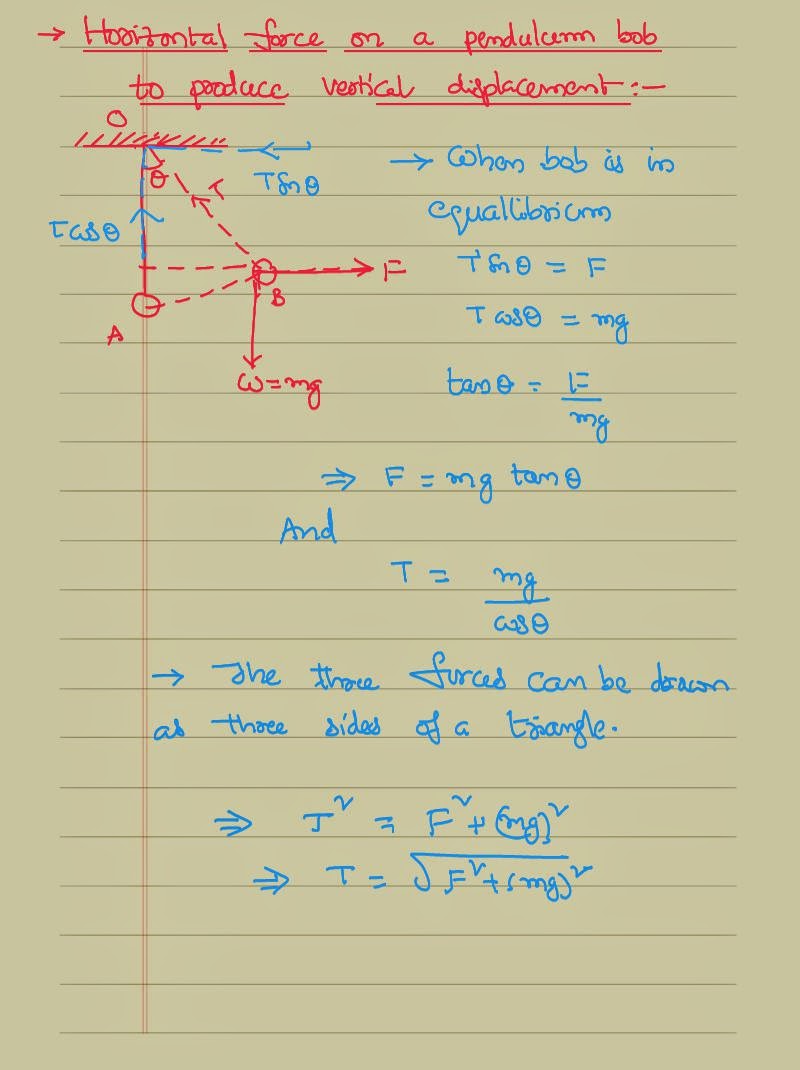 → Horizontal force on a pendulum bob
to produce vertical displacement:-
O
θ
T
T sinθ
T cosθ
F
B
A
W=mg
→ When bob is in
equallibrium
T sinθ = F
T cosθ = mg
tanθ = F/mg
⇒ F = mg tanθ
And
T = mg/cosθ
→ The three forces can be drawn
as three sides of a triangle.
⇒ T² = F² + (mg)²
⇒ T = √F²+(mg)²